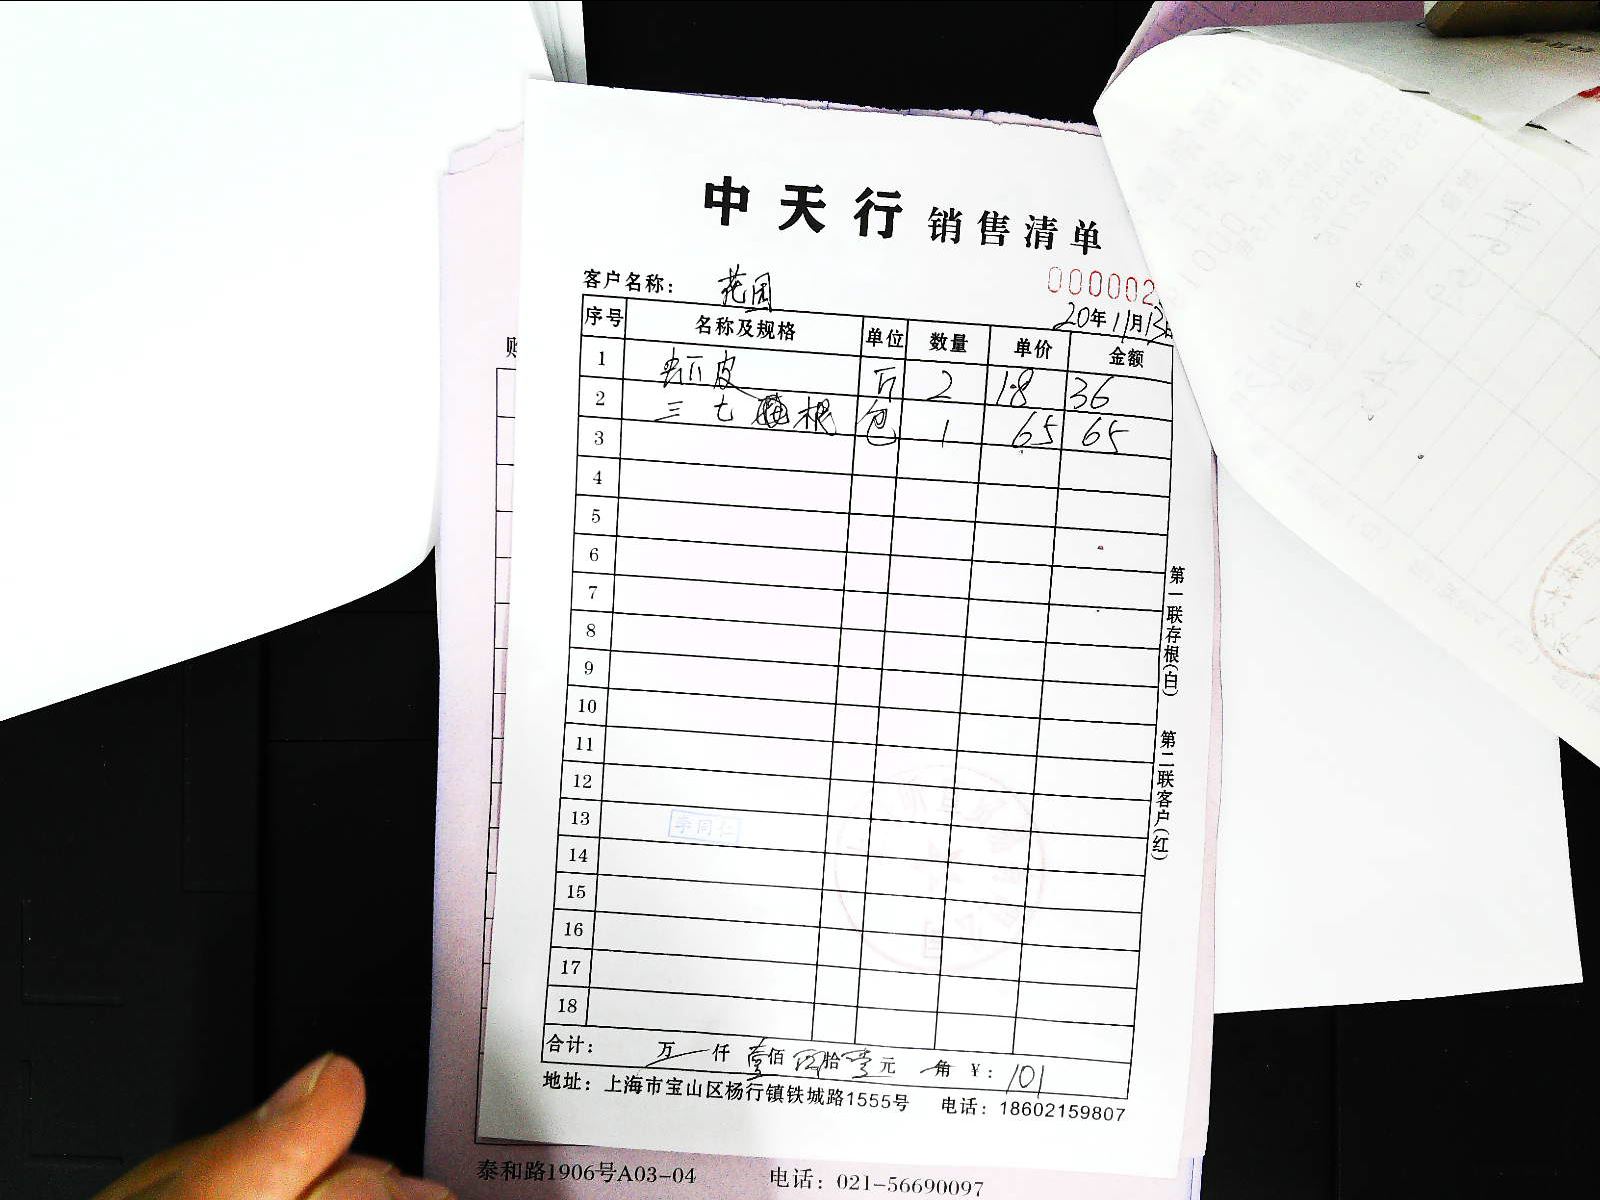 中天行 销售清单
客户名称： 花园
000002
20年11月13日
序号 名称及规格 单位 数量 单价 金额
1 虾皮 斤 2 18 36
2 三七 根 包 1 65 65
3
4
5
6
7
8
9
10
11
12
13
14
15
16
17
18
李同仁
合计： 万 仟 壹佰 拾壹元 角 ¥：101
地址：上海市宝山区杨行镇铁城路1555号 电话：18602159807
第一联存根（白） 第二联客户（红）
泰和路1906号A03-04 电话：021-56690097